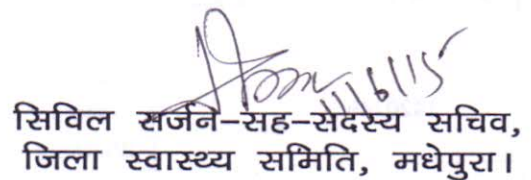 11/6/15
सिविल सर्जन-सह-सदस्य सचिव,
जिला स्वास्थ्य समिति, मधेपुरा।